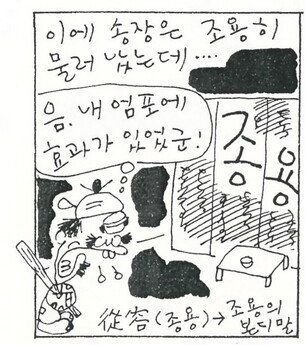 이에 송장은 조용히
물러 났는데....
음, 내 엄포에
효과가 있었군!
종용
從容(종용)→조용의
본디말